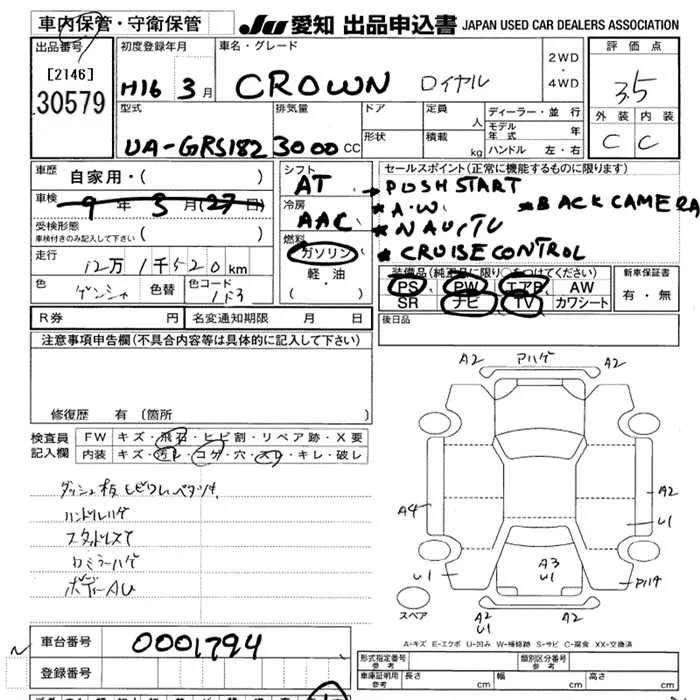 車内保管・守衛保管
JU 愛知 出品申込書 JAPAN USED CAR DEALERS ASSOCIATION
出品番号
[2146]
30579
初度登録年月
H16 3月
車名・グレード
CROWN ロイヤル
2WD
・
4WD
評価点
3.5
外装 内装
C C
型式
UA-GRS182
排気量
3000 CC
ドア
形状
定員
人
積載
kg
ディーラー・並行
モデル年式 年
ハンドル 左・右
車歴
自家用・( )
車検
9年3月(27日)
受検形態
車検付きのみ記入して下さい ( )
走行
12万1千520km
色 色替 色コード
1F3
シフト
AT
冷房
AAC
燃料
ガソリン
軽油
( ・ )
セールスポイント(正常に機能するものに限ります)
PUSH START
A.W. BACK CAMERA
NAVI/TV
CRUISE CONTROL
装備品(純正品に限り○をつけてください)
PS PW エアB AW
SR ナビ TV カワシート
新車保証書
有・無
後日品
R券 円 名変通知期限 月 日
注意事項申告欄(不具合内容等は具体的に記入して下さい)
修復歴 有(箇所 )
検査員
記入欄
FW キズ・飛石・ヒビ割・リペア跡・X要
内装 キズ・汚レ・コゲ・穴・スレ・キレ・破レ
ダッシュ板ヒビワレベタツキ
ハンドルハゲ
ボディーAU
A2 アハゲ A2
A4
A2
U1
U1
A3
U1
スペア
A2
U1
A2
A-キズ E-エクボ U-凹み W-補修跡 S-サビ C-腐食 XX-交換済
車台番号
0001794
登録番号
形式指定番号
参考
類別区分番号
参考
車庫証明用
参考
長さ cm
幅 cm
高さ cm